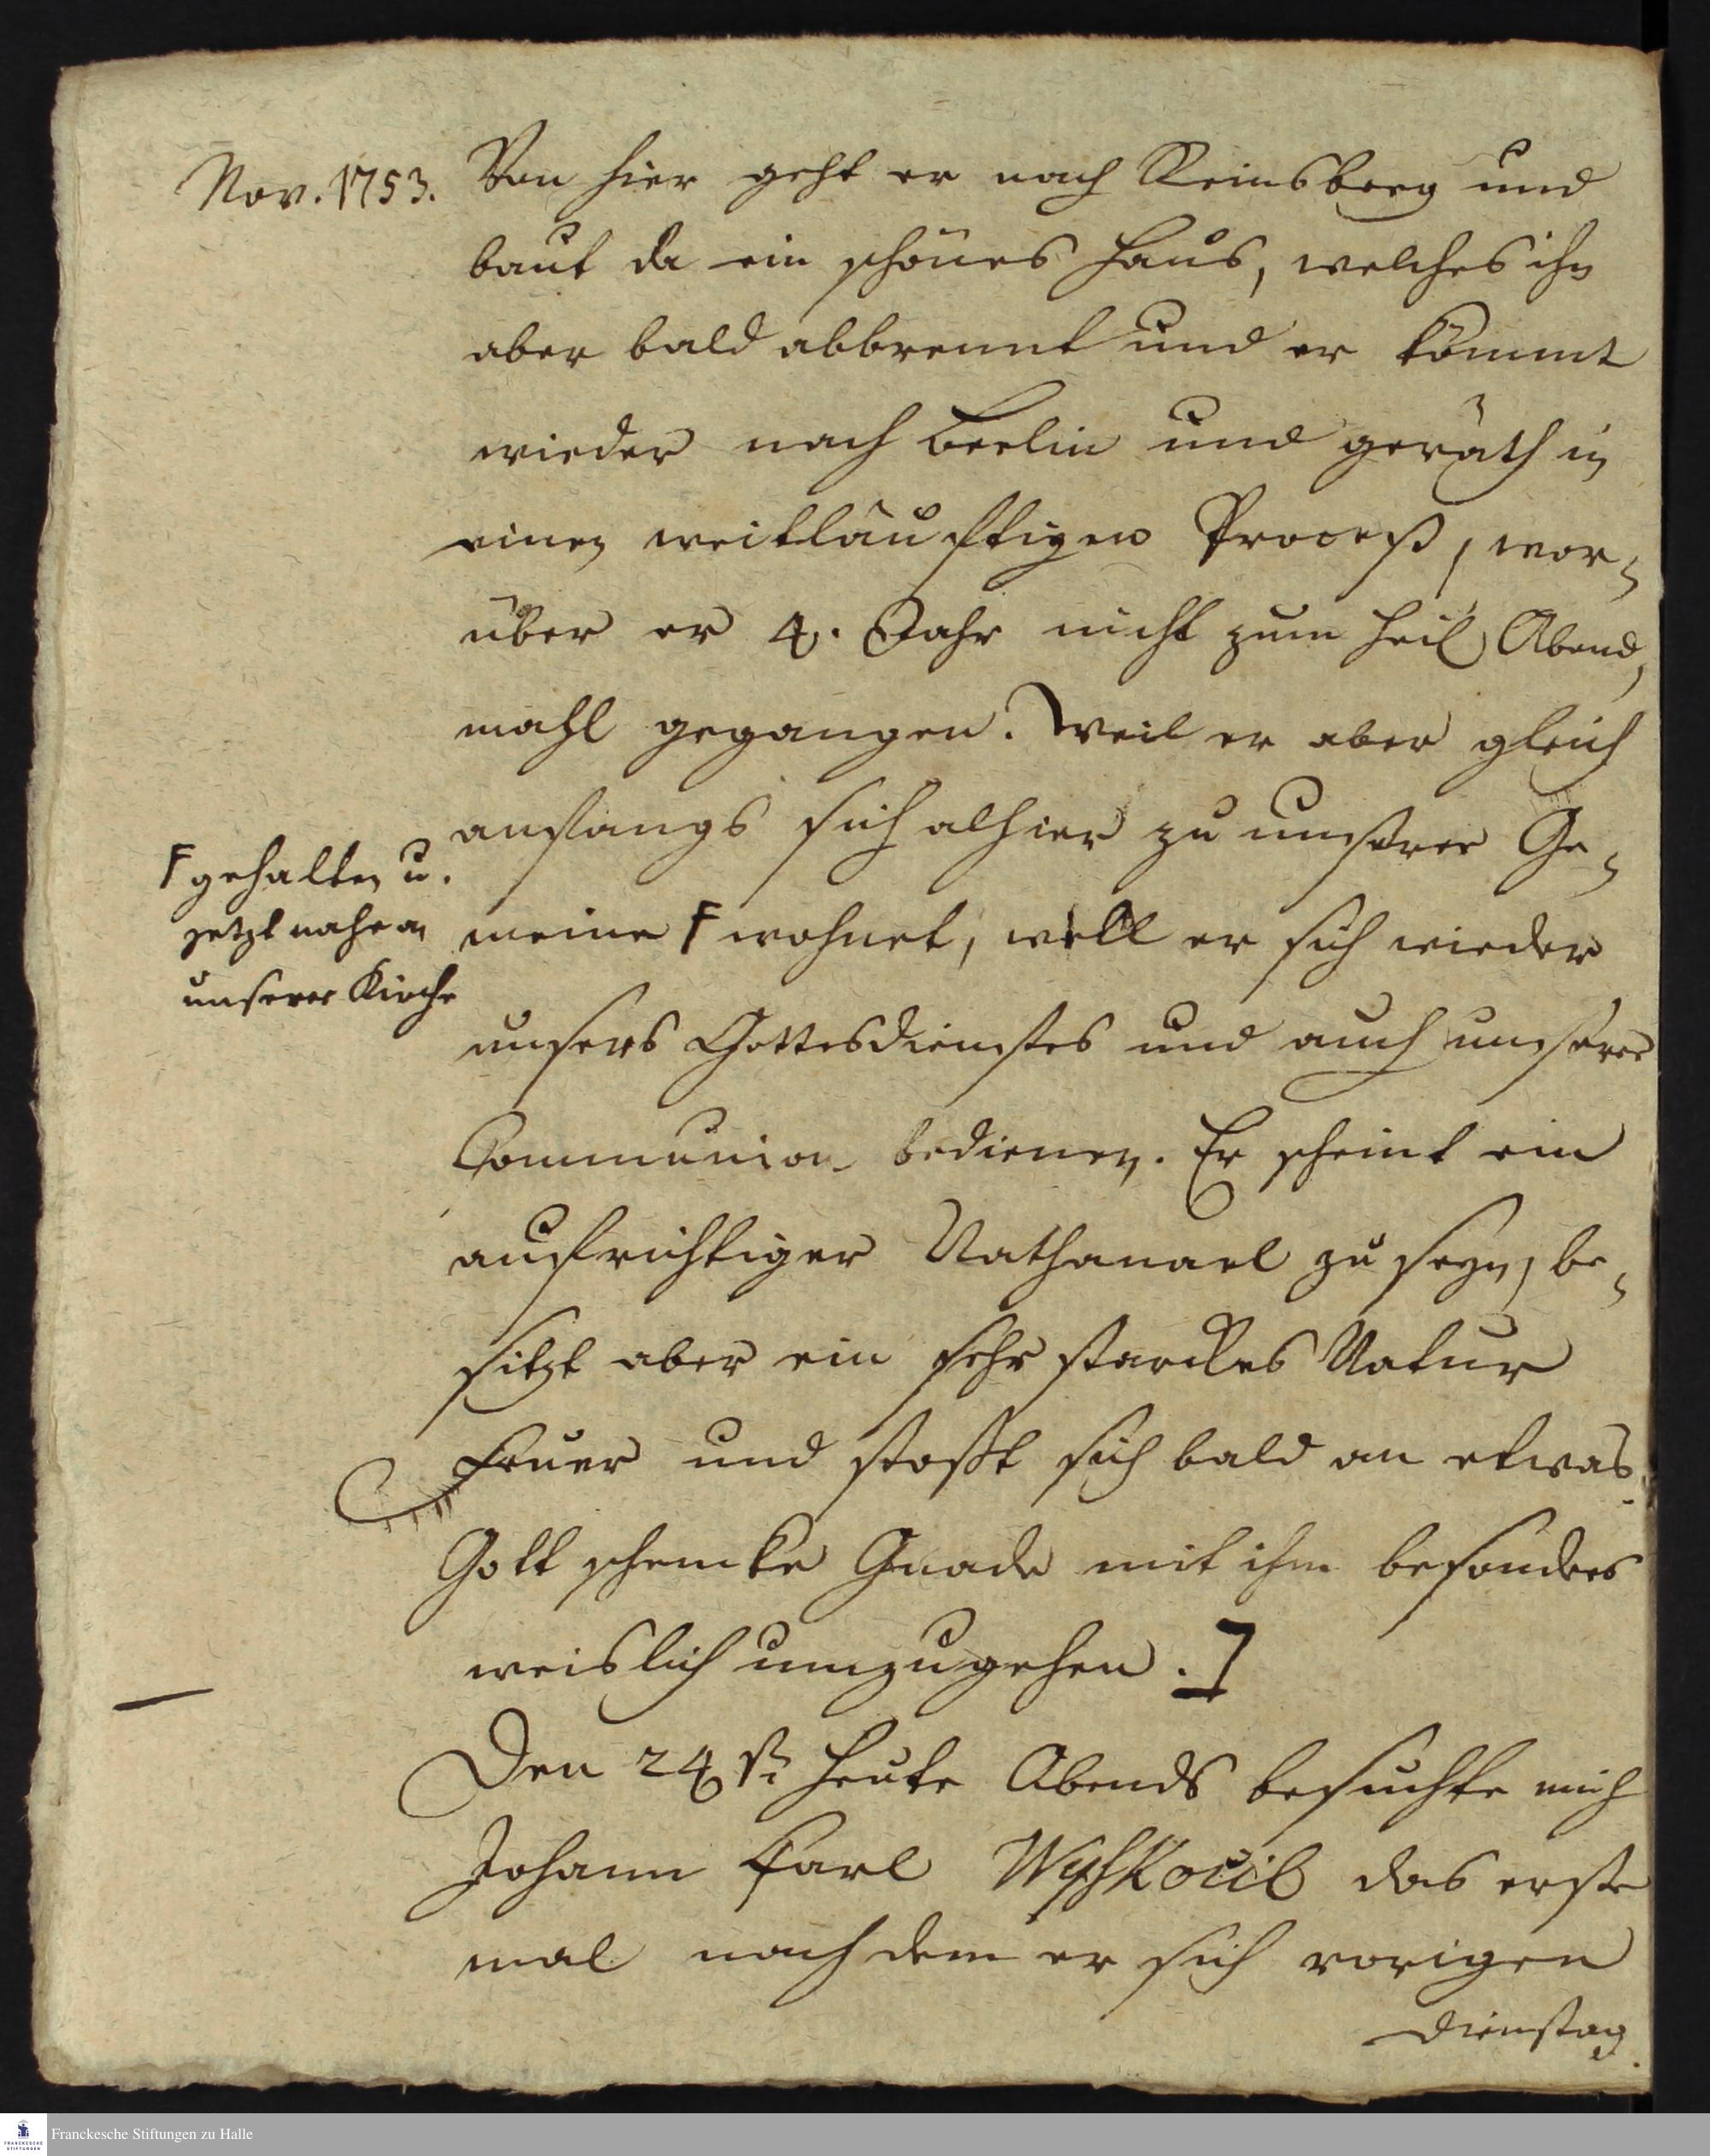 Nov. 1753.
Von hier geht er nach Reinsberg und
baut da ein schönes Haus, welches ihm
aber bald abbrennt und er kömmt
wieder nach Berlin und geräth in
einen weitläuftigen Proceß, wor-
über er 4. Jahr nicht zum heil. Abend-
mahl gegangen. Weil er aber gleich
anfangs sich alhier zu unserer Ge-
meine F wohnet, will er sich wieder
F gehalten u.
jetzt nahe an
unserer Kirche
unsers Gottesdienstes und auch unserer
Communion bedienen. Er scheint ein
aufrichtiger Nathanael zu seyn, be-
sitzt aber ein sehr starckes Natur
Feuer und stoßt sich bald an etwas.
Gott schencke Gnade mit ihm besonders
weislich umzugehen. ]
Den 24st. Heute Abends besuchte mich
Johann Carl Wyskocil das erste
mal nach dem er sich vorigen
Dienstag
Franckesche Stiftungen zu Halle